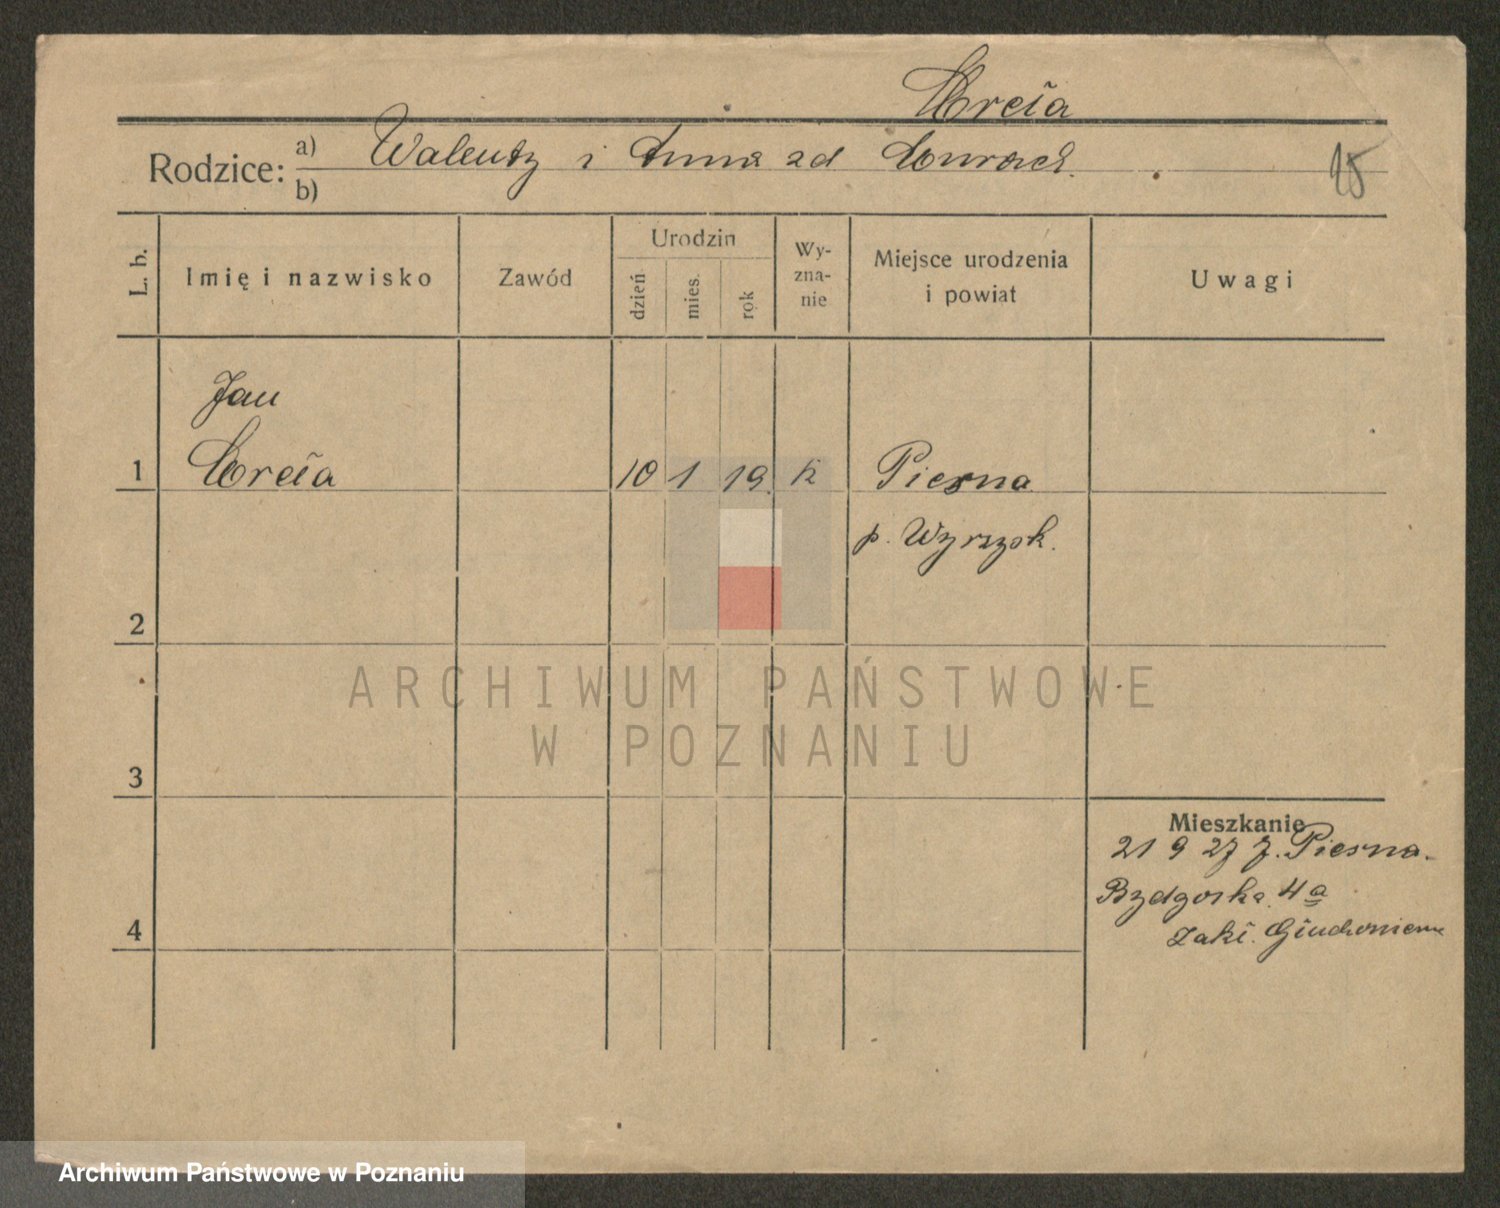 Rodzice: a) Walenty i Anna zd
b)
L. b.
Imię i nazwisko
Zawód
Urodzin
dzień
mies.
rok
Wy-
zna-
nie
Miejsce urodzenia
i powiat
Uwagi
Jan
1 10 1 19. k Piesna
p. Wyrzysk.
2
ARCHIWUM PAŃSTWOWE
W POZNANIU
3
Mieszkanie
21 9 27 z. Piesna.
Bydgoska 4a
4
Archiwum Państwowe w Poznaniu